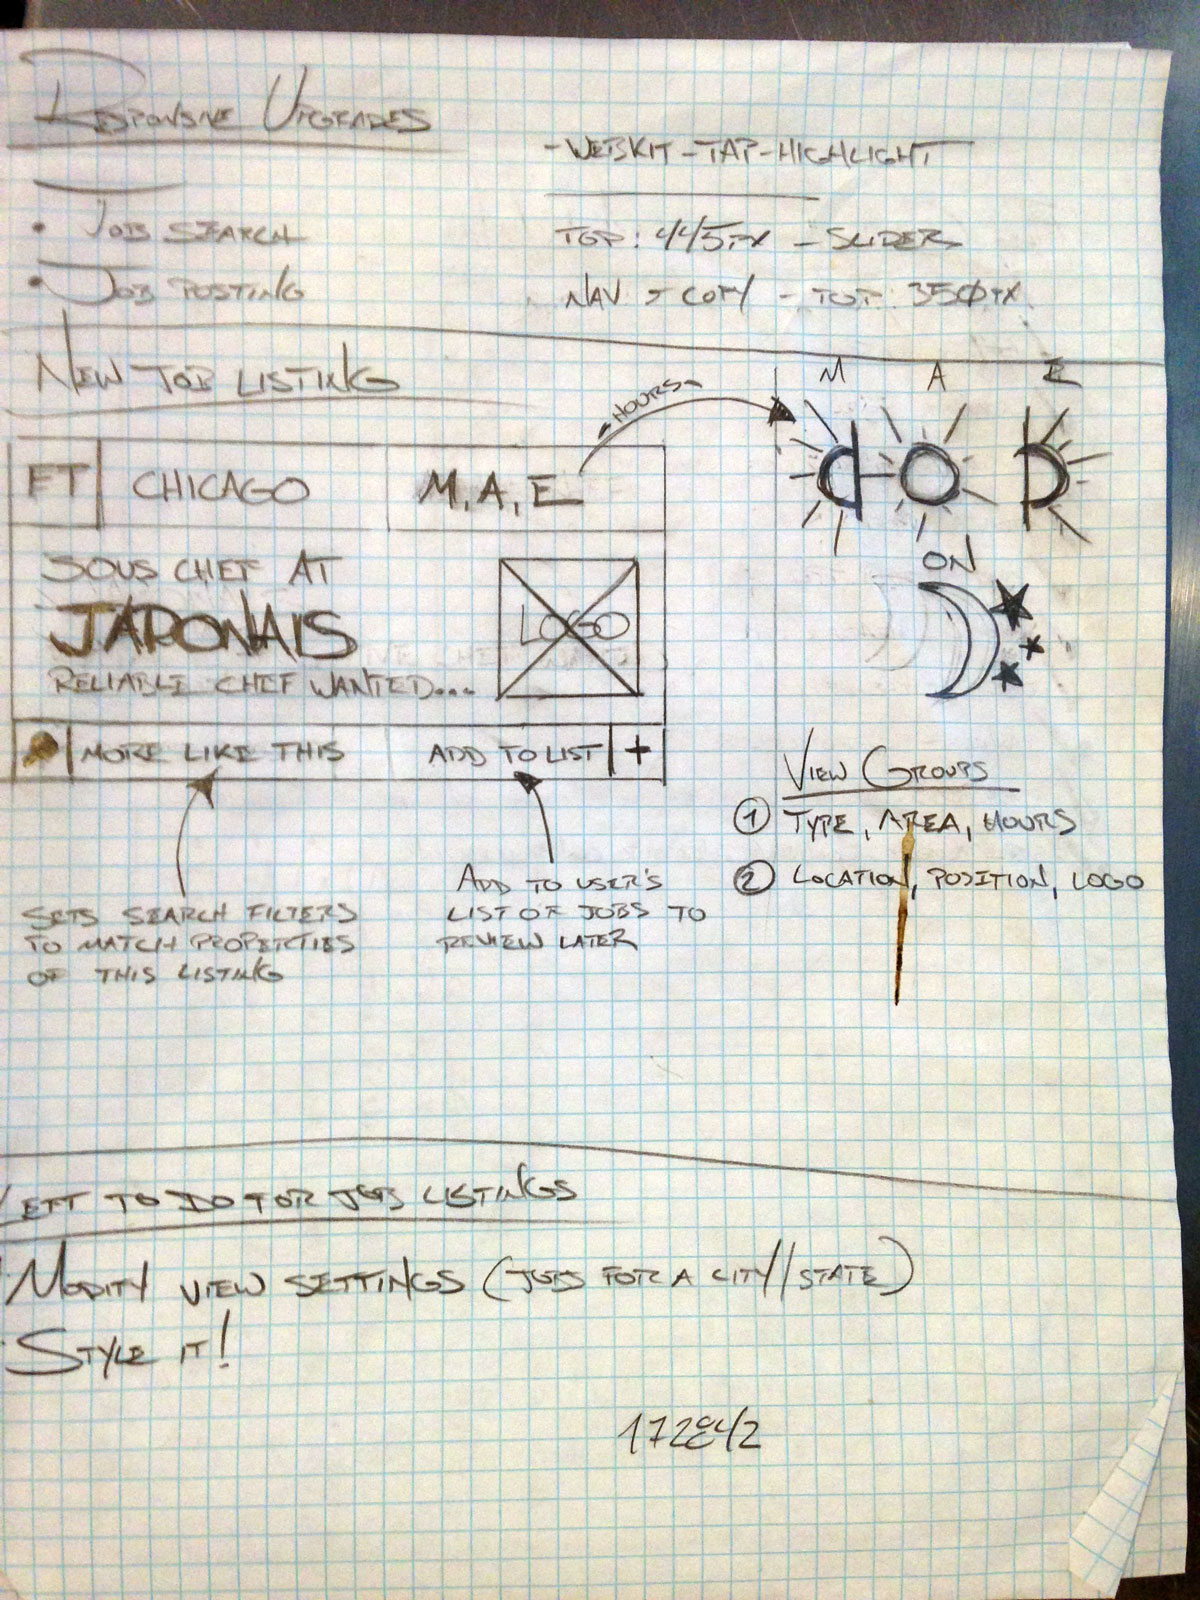 RESPONSIVE UPGRADES
• JOB SEARCH
• JOB POSTING
-WEBKIT-TAP-HIGHLIGHT
TOP: 445PX - SLIDER
NAV > COPY - TOP: 350PX
NEW JOB LISTING
FT
CHICAGO
M, A, E
HOURS
M A E
SOUS CHEF AT
JAPONAIS
RELIABLE CHEF WANTED...
LOGO
ON
MORE LIKE THIS
ADD TO LIST +
SETS SEARCH FILTERS
TO MATCH PROPERTIES
OF THIS LISTING
ADD TO USER'S
LIST OF JOBS TO
REVIEW LATER
VIEW GROUPS
① TYPE, AREA, HOURS
② LOCATION, POSITION, LOGO
LEFT TO DO FOR JOB LISTINGS
MODIFY VIEW SETTINGS (JOBS FOR A CITY//STATE)
STYLE IT!